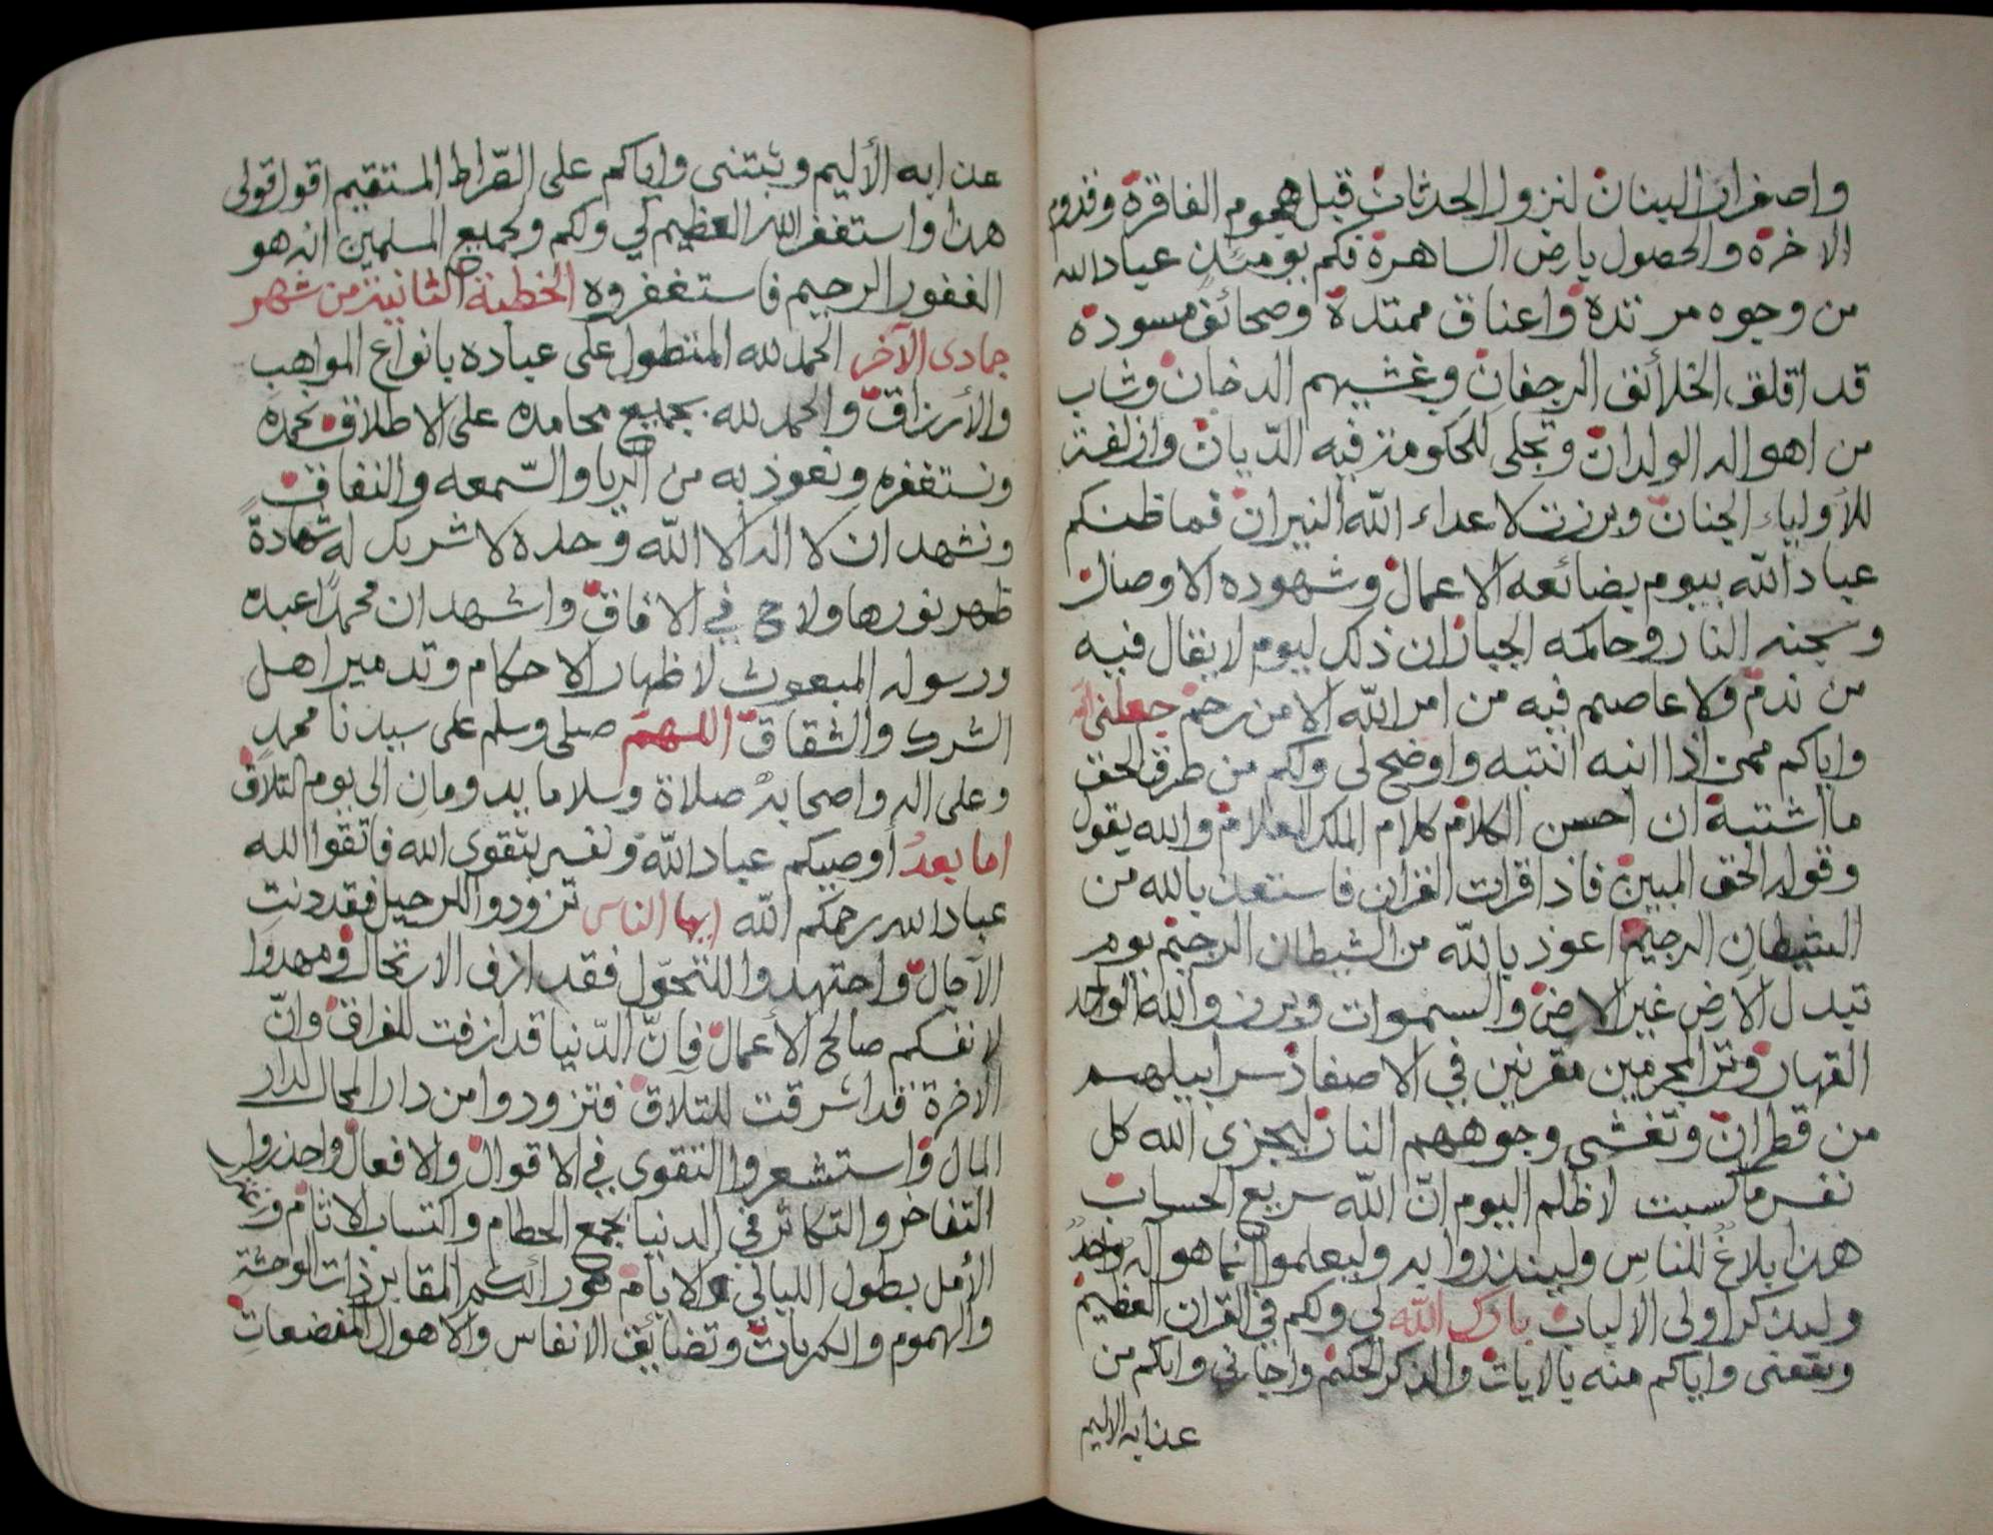 واصفرار البنان لنزول الحدثان قبل هجوم الفاقرة وقدوم
الاخرة والحصول بارض الساهرة فكم يومئذ عباد الله
من وجوه مرتدة واعناق ممتدة وصحائف مسودة
قد اقلق الخلائق الرجفان وغشيهم الدخان وشاب
من اهواله الولدان وتجلى للحكومة فيه الديان وازلفت
للأولياء الجنان وبرزت لاعداء الله النيران فما ظنكم
عباد الله بيوم بضائعه الاعمال وشهوده الاوصال
وسجنه النار وحاكمه الجبار ان ذلك ليوم لا يقال فيه
من ندم ولا عاصم فيه من امر الله الا من رحم جعلني الله
واياكم ممن اذا انبه انتبه واوضح لي ولكم من طرق الحق
ما اشتبه ان احسن الكلام كلام الملك العلام والله يقول
وقوله الحق المبين فاذا قرات القران فاستعذ بالله من
الشيطان الرجيم اعوذ بالله من الشيطان الرجيم يوم
تبدل الارض غير الارض والسموات وبرزوا لله الواحد
القهار وترا المجرمين مقرنين في الاصفاد سرابيلهم
من قطران وتغشى وجوههم النار ليجزى الله كل
نفس ما كسبت لا ظلم اليوم انّ الله سريع الحساب
هذا بلاغ للناس ولينذروا به وليعلموا انما هو اله واحد
وليذكر اولى الالباب بارك الله لي ولكم في القران العظيم
ونفعنى واياكم منه بالايات والذكر الحكيم واجارني واياكم من
عذابه الاليم
عذابه الأليم وثبتنى واياكم على الصّراط المستقيم اقول قولى
هذا واستغفر الله العظيم لي ولكم ولجميع المسلمين انه هو
الغفور الرحيم فاستغفروه الخطبة الثانية من شهر
جمادى الآخر الحمد لله المتطول على عباده بانواع المواهب
والأرزاق والحمد لله بجميع محامده على الاطلاق نحمده
ونستغفره ونعوذ به من الريا والسّمعه والنفاق
ونشهد ان لا اله الا الله وحده لا شريك له شهادة
ظهر نورها ولاح في الافاق واشهد ان محمدًا عبده
ورسوله المبعوث لاظهار الاحكام وتدمير اهل
الشرك والشقاق اللهم صلى وسلم على سيدنا محمد
وعلى اله واصحابه صلاة وسلاما يدومان الى يوم التلاق
اما بعد أوصيكم عباد الله ونفسي بتقوى الله فاتقوا الله
عباد الله رحمكم الله ايها الناس تزودوا للرحيل فقد دنت
الآجال واجتهدوا للتحوّل فقد ازف الارتحال ومهدوا
لانفسكم صالح الأعمال فانّ الدّنيا قد ازفت للفراق وانّ
الاخرة قد اشرقت للتلاق فتزودوا من دار المحال لدار
المال واستشعروا التقوى في الاقوال والافعال واحذروا
التفاخر والتكاثر في الدنيا بجمع الحطام واكتساب الاثام و
الأمل بطول الليالي والايام فورائكم المقابر ذات الوحشة
والهموم والكربات وتضايق الانفاس والاهوال المفضعات